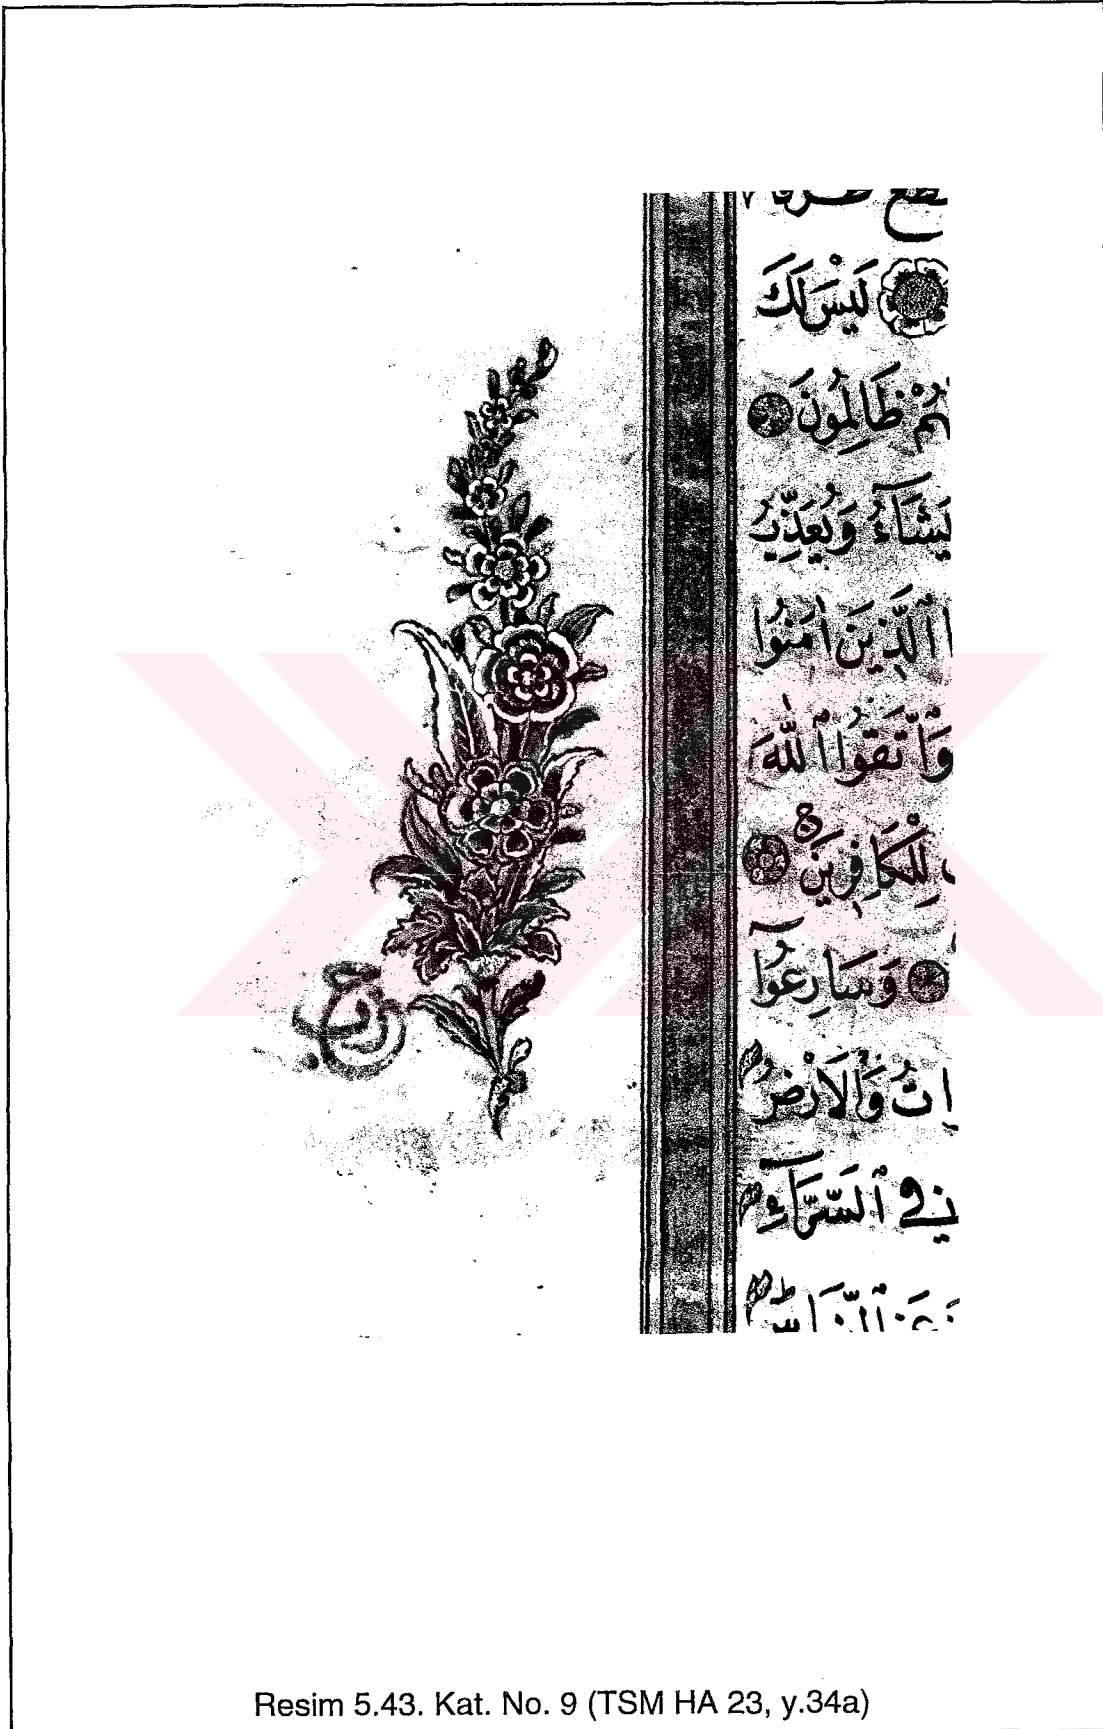 لَيْسَ لَكَ
ظَالِمُونَ
يَشَاءُ وَيُعَذِّبُ
ٱلَّذِينَ اٰمَنُوا
وَٱتَّقُوا ٱللّٰهَ
لِلْكَافِرِينَ
وَسَارِعُوٓا
وَٱلْاَرْضُ
فِي ٱلسَّرَّٓاءِ
Resim 5.43. Kat. No. 9 (TSM HA 23, y.34a)